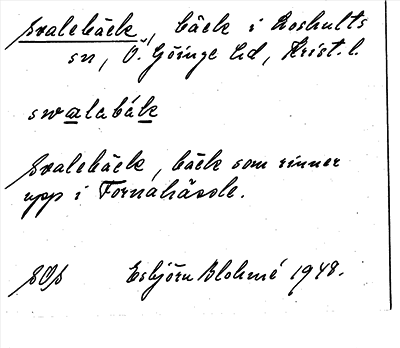 Svalebäck, bäck i Loshults
sn, Ö. Göinge hd, Krist. l.
swalabäk
Svalebäck, bäck som rinner
upp i Fornahåsole.
SOS Esbjörn Blohmé 1948.